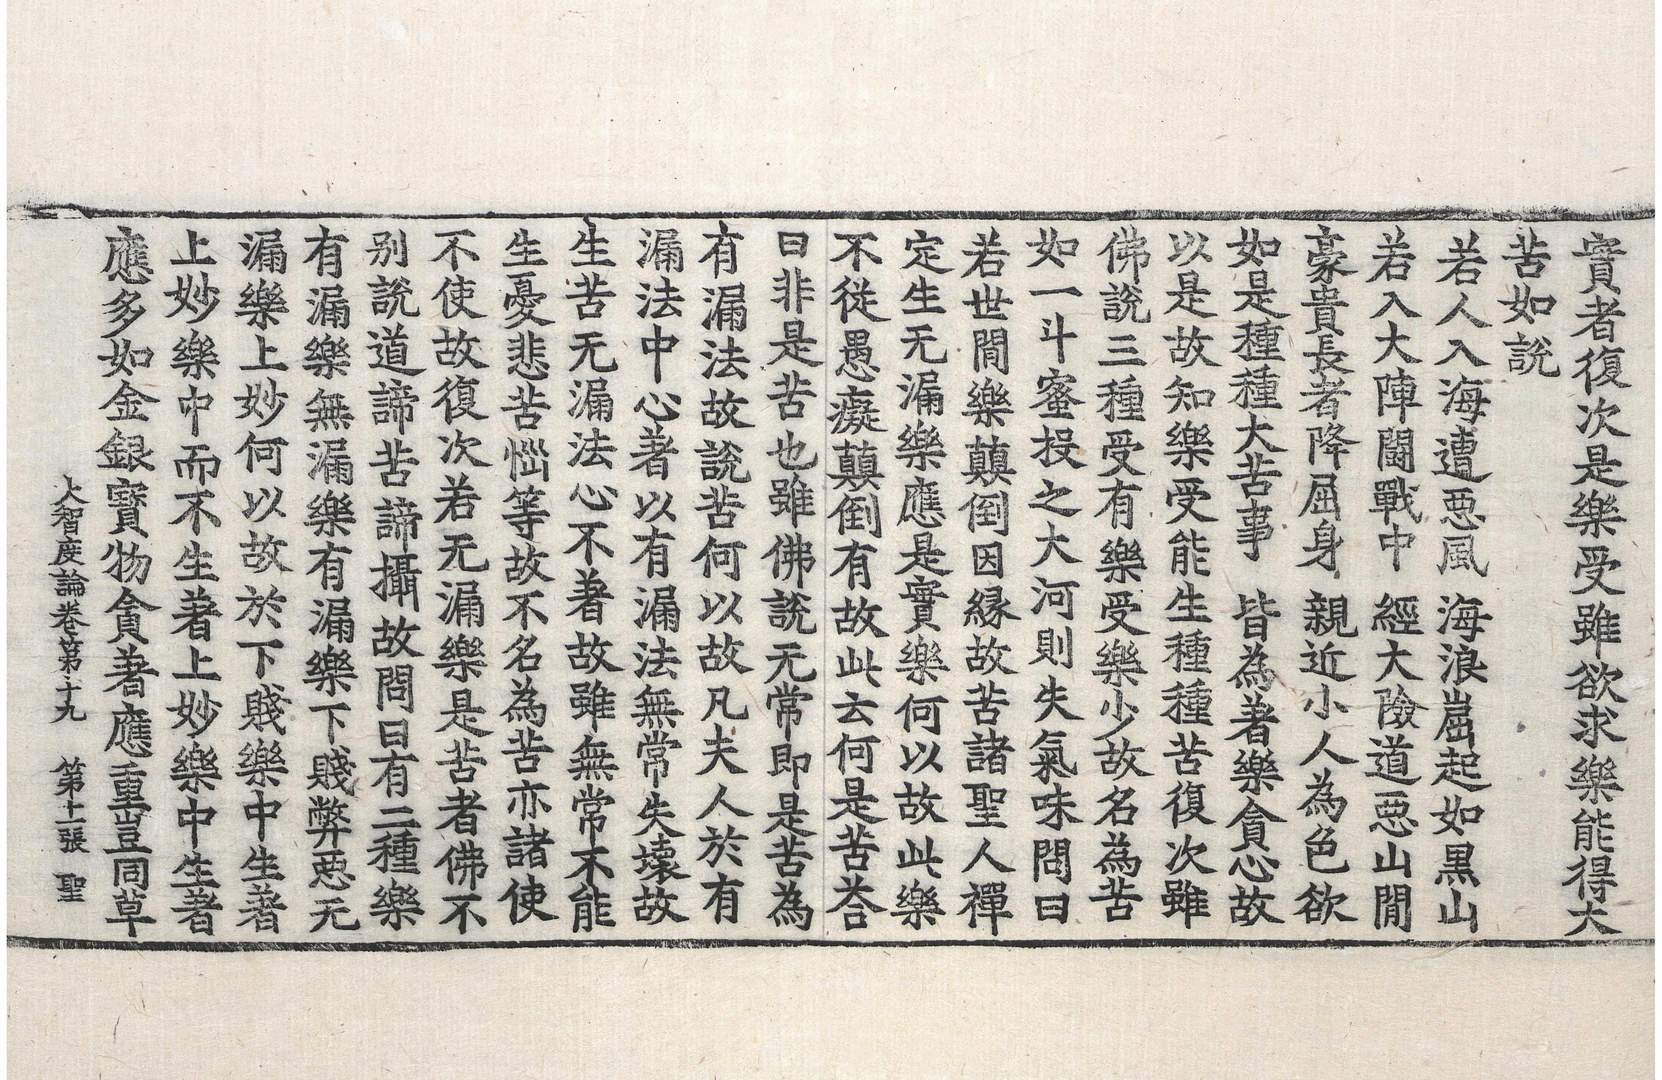 實者復次是樂受雖欲求樂能得大
苦如說
若人入海遭惡風 海浪崛起如黑山
若入大陣鬪戰中 經大險道惡山間
豪貴長者降屈身 親近小人為色欲
如是種種大苦事 皆為著樂貪心故
以是故知樂受能生種種苦復次雖
佛說三種受有樂受樂少故名為苦
如一斗蜜投之大河則失氣味問曰
若世間樂顛倒因緣故苦諸聖人禪
定生无漏樂應是實樂何以故此樂
不從愚癡顛倒有故此云何是苦荅
曰非是苦也雖佛說无常即是苦為
有漏法故說苦何以故凡夫人於有
漏法中心著以有漏法無常失壞故
生苦无漏法心不著故雖無常不能
生憂悲苦惱等故不名為苦亦諸使
不使故復次若无漏樂是苦者佛不
别說道諦苦諦攝故問曰有二種樂
有漏樂無漏樂有漏樂下賤弊惡无
漏樂上妙何以故於下賤樂中生著
上妙樂中而不生著上妙樂中生著
應多如金銀寶物貪著應重豈同草
大智度論卷第十九 第十一張 聖